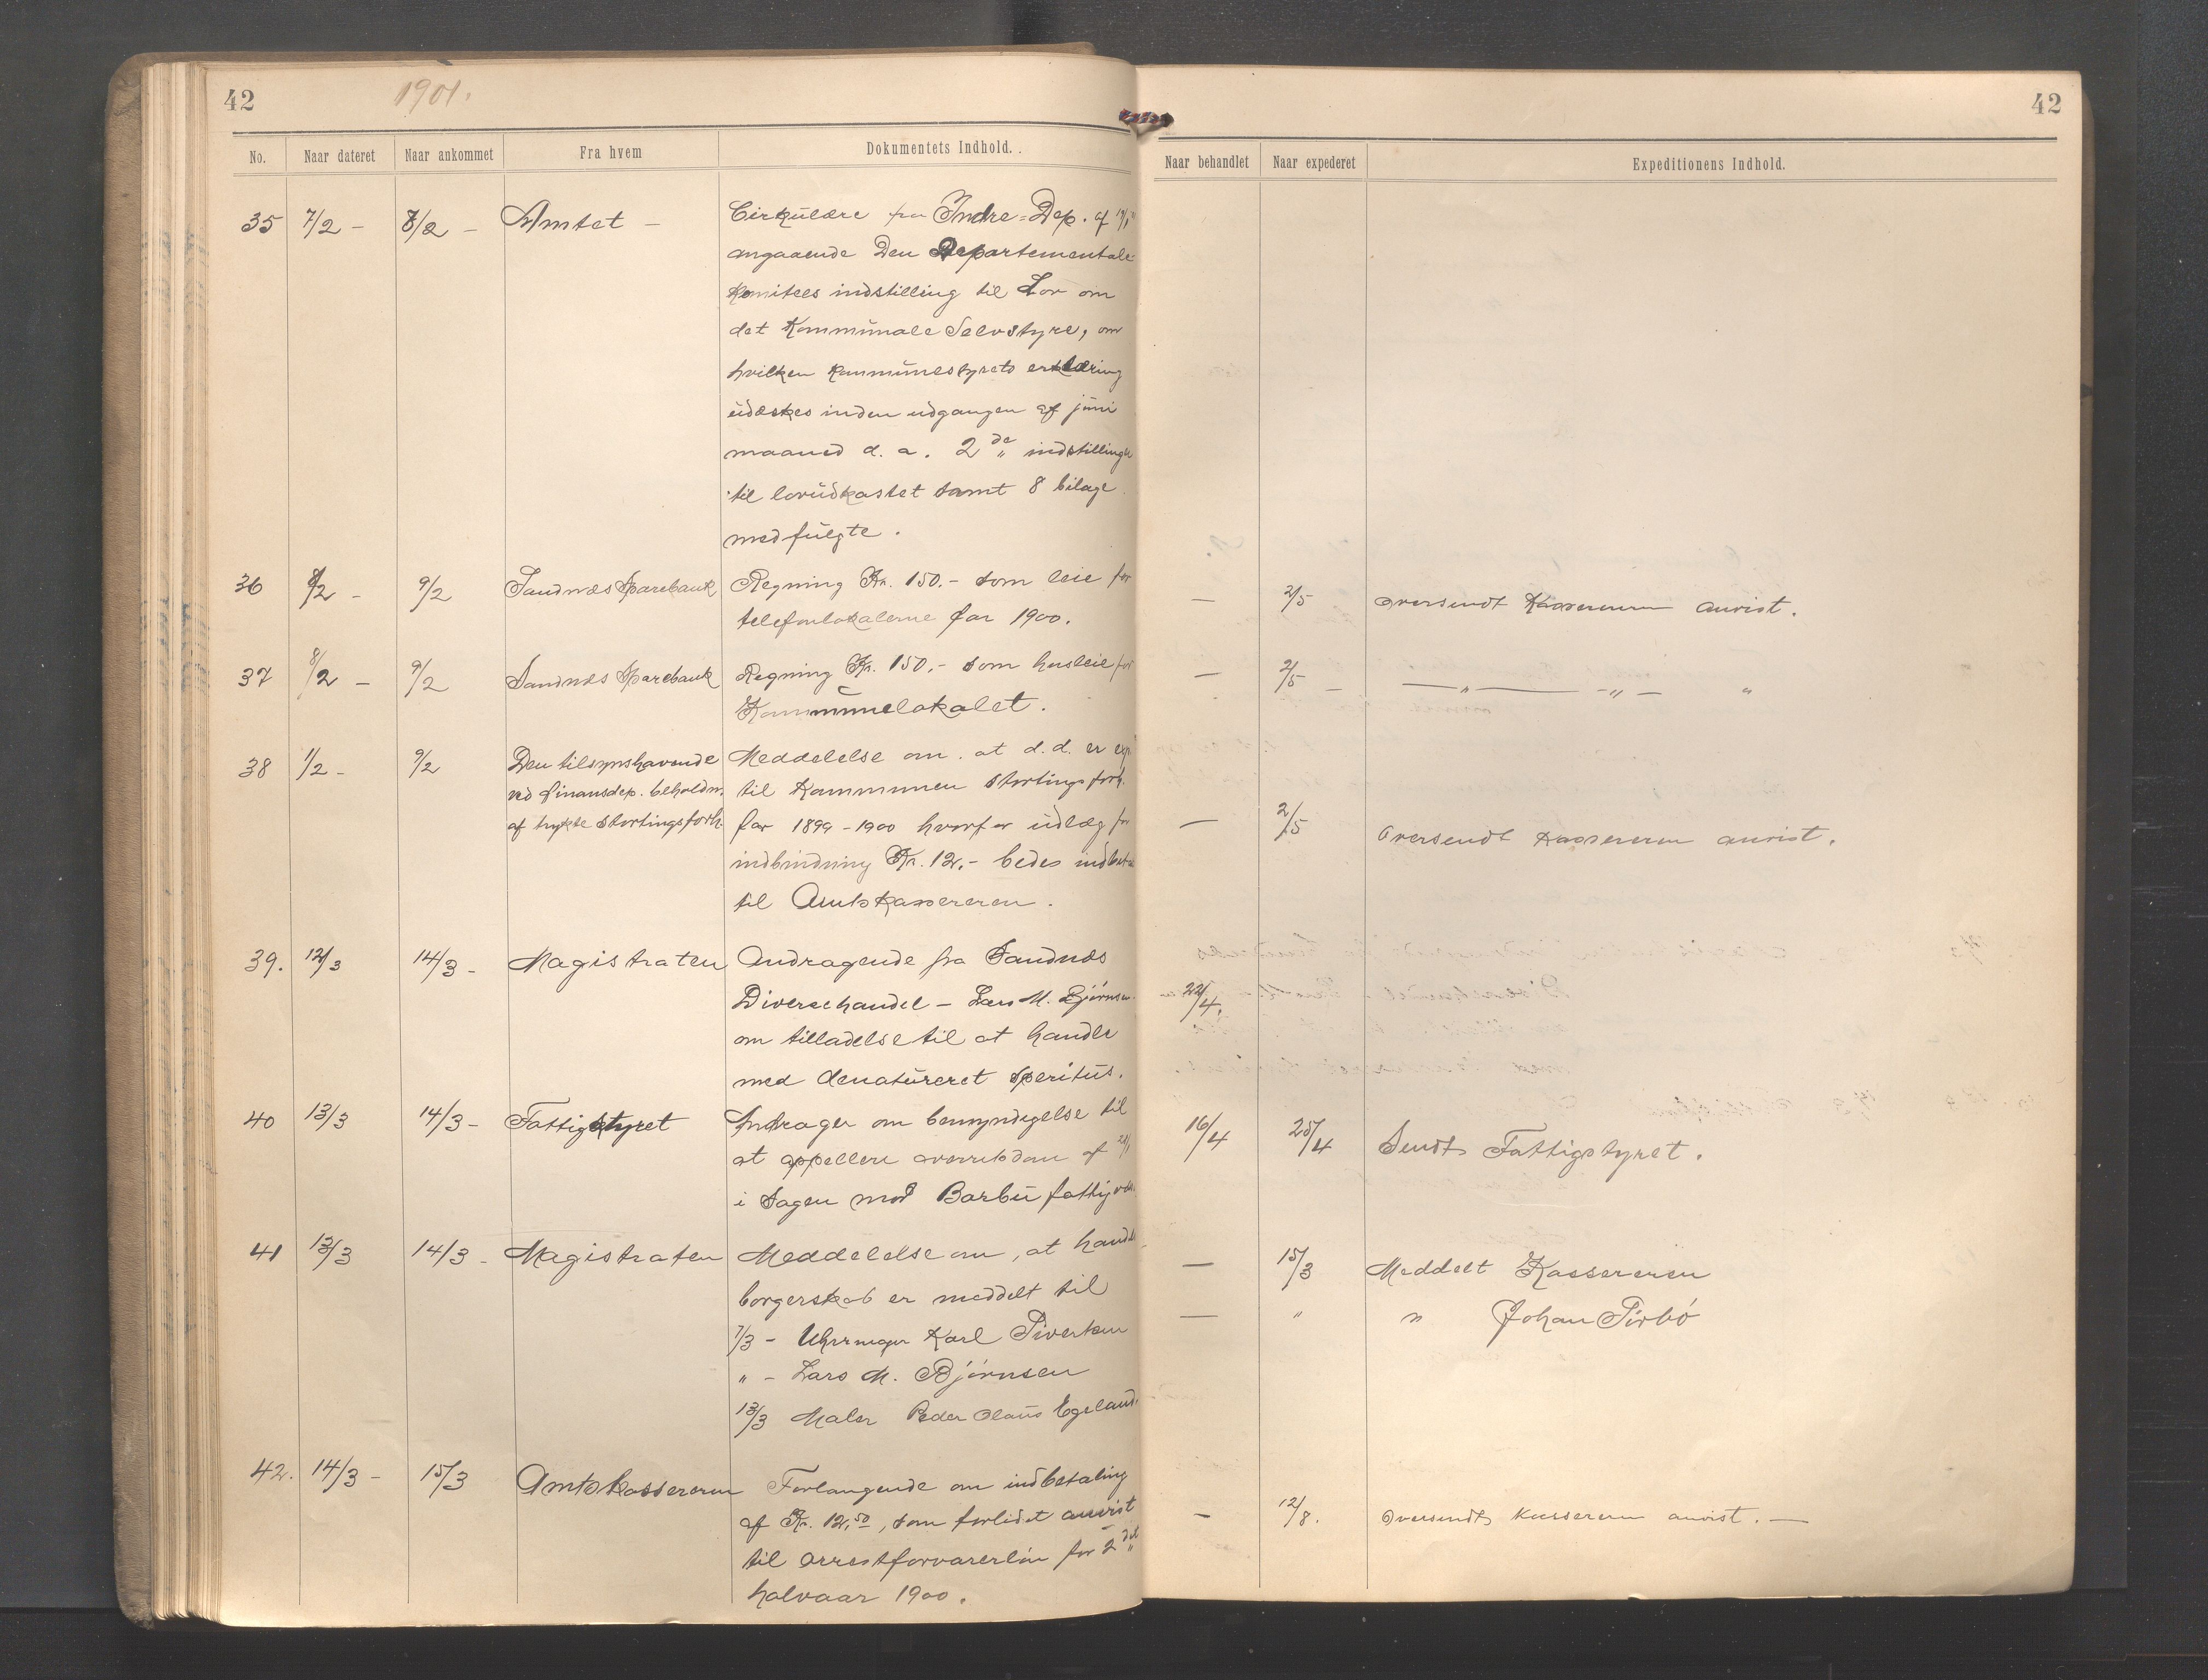 42
1901.
No. Naar dateret Naar ankommet Fra hvem Dokumentets Indhold.
35 7/2 - 8/2 - Amtet - Cirkulære fra Indre-Dep. af
angaaende Den Departementale
Komitees indstilling til Lov om
det Kommunale Selvstyre, om
hvilken Kommunestyrets erklæring
udæskes inden udgangen af juni
maaned d. a. 2de indstillinger
til lovudkastet samt 8 bilage
medfulgte.
36 8/2 - 9/2 Sandnæs Sparebank Regning Kr. 150.- som leie for
telefonlokalerne for 1900.
37 8/2 - 9/2 Sandnæs Sparebank Regning Kr. 150.- som husleie for
Kommunelokalet.
38 1/2 - 9/2 Den tilsynshavende Meddelelse om at d.d. er exp.
ved finansdep. beholdn. til Kommunen Stortingsforh.
af trykte Stortingsforh. for 1899-1900 hvorfor udlæg for
indbinding Kr. 12.- bedes indbet.
til Amtskassereren.
39. 12/3 14/3 - Magistraten Andragende fra Sandnæs
Diversehandel - Lars M. Bjørnsen
om tilladelse til at handle
med denatureret Speritus.
40 13/3 14/3 - Fattigstyret Andrager om bemyndigelse til
at appellere overretsdom af
i Sagen mod Barbu fattigv.
41 13/3 14/3 - Magistraten Meddelelse om, at handels
borgerskab er meddelt til
7/3 - Uhrmager Karl
" - Lars M. Bjørnsen
13/3 Maler Peder Olaus Egeland.
42. 14/3 - 15/3 Amtskassereren Forlangende om indbetaling
af Kr. 12,50, som forlidet anvist
til arrestforvarerløn for 2det
halvaar 1900.
42
Naar behandlet Naar expederet Expeditionens Indhold.
— 2/5 Oversendt Kassereren anvist.
— 2/5 - —"— -"- "
— 2/5 Oversendt Kassereren anvist.
22/4.
16/4 25/4 Sendt Fattigstyret.
— 15/3 Meddelt Kassereren
— " " Johan
- 12/8. Oversendt Kassereren anvist. —